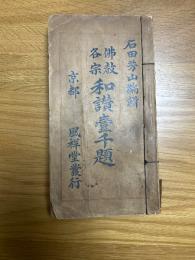 石田芳山編輯
佛教
各宗
和讃壹千題
京都
風祥堂發行